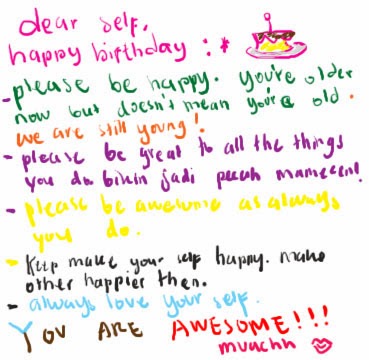 dear self,
happy birthday :*
- please be happy. you're older
now but doesn't mean you're old.
we are still young!
- please be great to all the things
you do. bikin jadi pecah mameeen!
- please be awesome as always
you do.
- Keep make your self happy. make
other happier then.
- always love your self.
YOU ARE AWESOME!!!
muachh